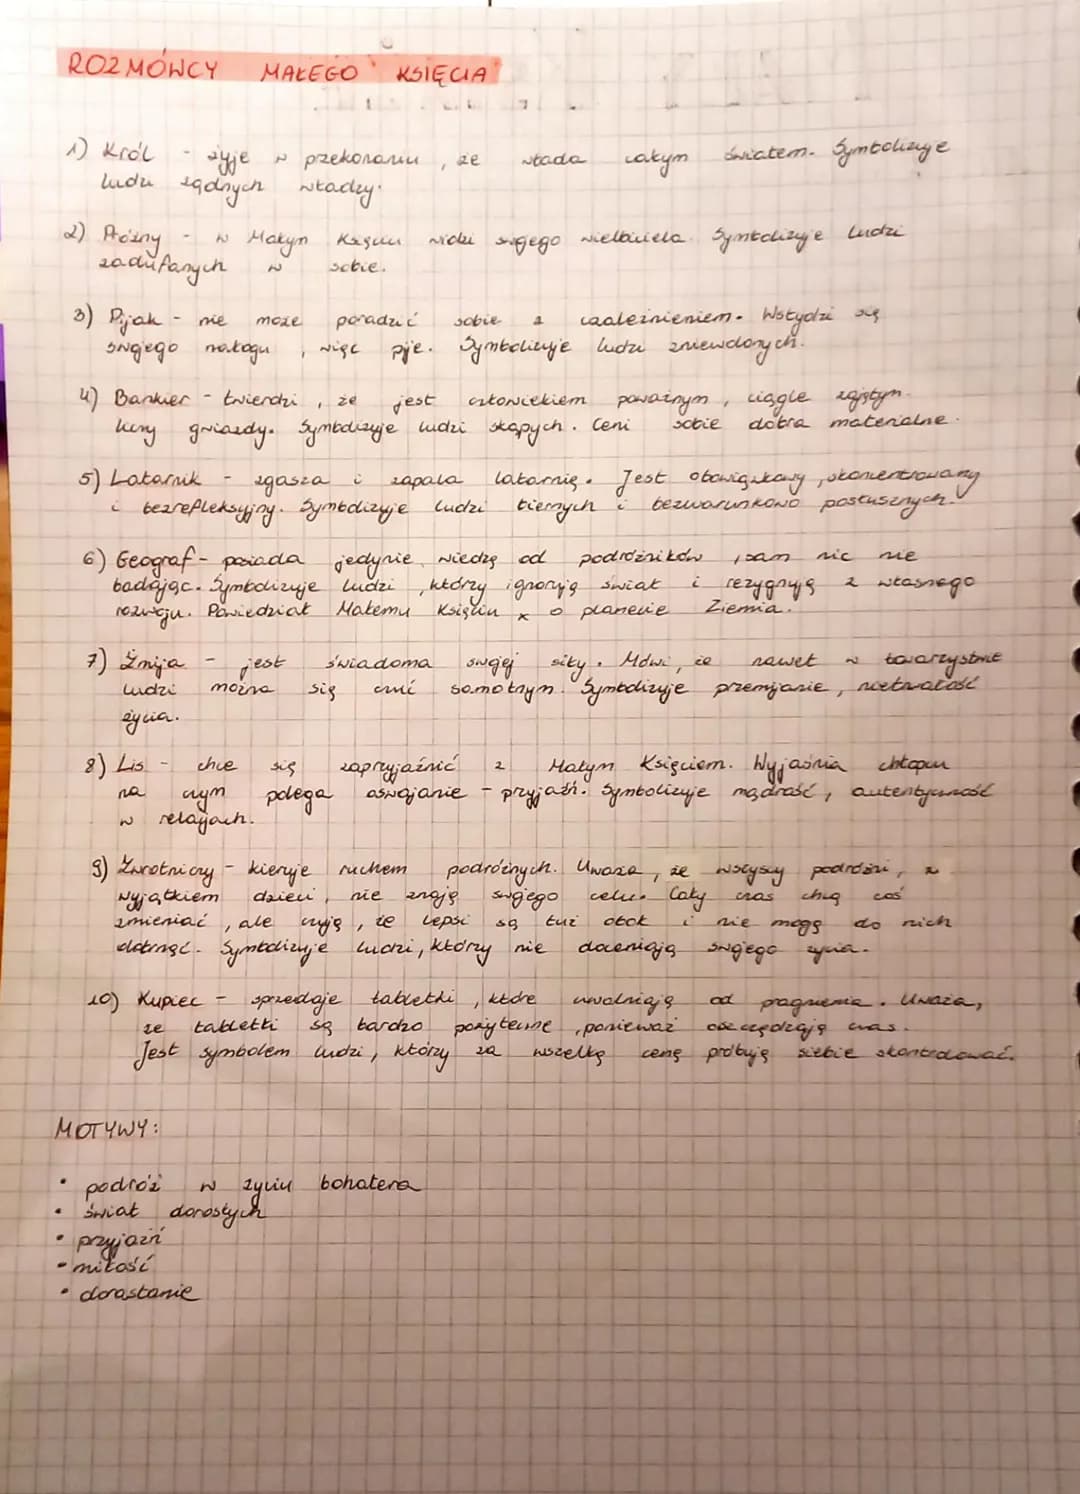 ROZMÓWCY MAŁEGO KSIĘCIA
1) Król - żyje w przekonaniu, że włada całym światem. Symbolizuje
ludzi żądnych władzy.
2) Próżny - w Małym Księciu widzi swojego wielbiciela. Symbolizuje ludzi
zadufanych w sobie.
3) Pijak - nie może poradzić sobie z uzależnieniem. Wstydzi się
swojego nałogu, więc pije. Symbolizuje ludzi zniewolonych.
4) Bankier - twierdzi, że jest człowiekiem poważnym, ciągle zajętym.
liczy gwiazdy. Symbolizuje ludzi skąpych. Ceni sobie dobra materialne.
5) Latarnik - zgasza i zapala latarnię. Jest obowiązkowy, skoncentrowany
i bezrefleksyjny. Symbolizuje ludzi biernych i bezwarunkowo posłusznych.
6) Geograf - posiada jedynie wiedzę od podróżników, sam nic nie
badając. Symbolizuje ludzi, którzy ignorują świat i rezygnują z własnego
rozwoju. Powiedział Małemu Księciu x o planecie Ziemia.
7) Żmija - jest świadoma swojej siły. Mówi, że nawet w towarzystwie
ludzi można się czuć samotnym. Symbolizuje przemijanie, nietrwałość
życia.
8) Lis - chce się zaprzyjaźnić z Małym Księciem. Wyjaśnia chłopcu
na czym polega oswajanie - przyjaźń. Symbolizuje mądrość, autentyczność
w relacjach.
9) Zwrotniczy - kieruje ruchem podróżnych. Uważa, że wszyscy podróżni, z
wyjątkiem dzieci, nie znają swojego celu. Cały czas chcą coś
zmieniać, ale czują, że lepsi są tuż obok i nie mogą do nich
dotrzeć. Symbolizuje ludzi, którzy nie doceniają swojego życia.
10) Kupiec - sprzedaje tabletki, które uwalniają od pragnienia. Uważa,
że tabletki są bardzo pożyteczne, ponieważ oszczędzają czas.
Jest symbolem ludzi, którzy za wszelką cenę próbują siebie skontrolować.
MOTYWY:
• podróż w życiu bohatera
• świat dorosłych
• przyjaźń
• miłość
• dorastanie